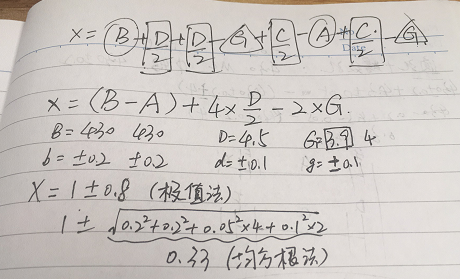 x = B + D/2 + D/2 - G + C/2 - A + C/2 - G
x = (B-A) + 4× D/2 - 2×G
B = 430 430 D = 4.5 G = 3.9 4
b = ±0.2 ±0.2 d = ±0.1 g = ±0.1
X = 1 ± 0.8 (极值法)
1 ± √(0.2²+0.2²+0.05²×4+0.1²×2)
0.33 (均方根法)